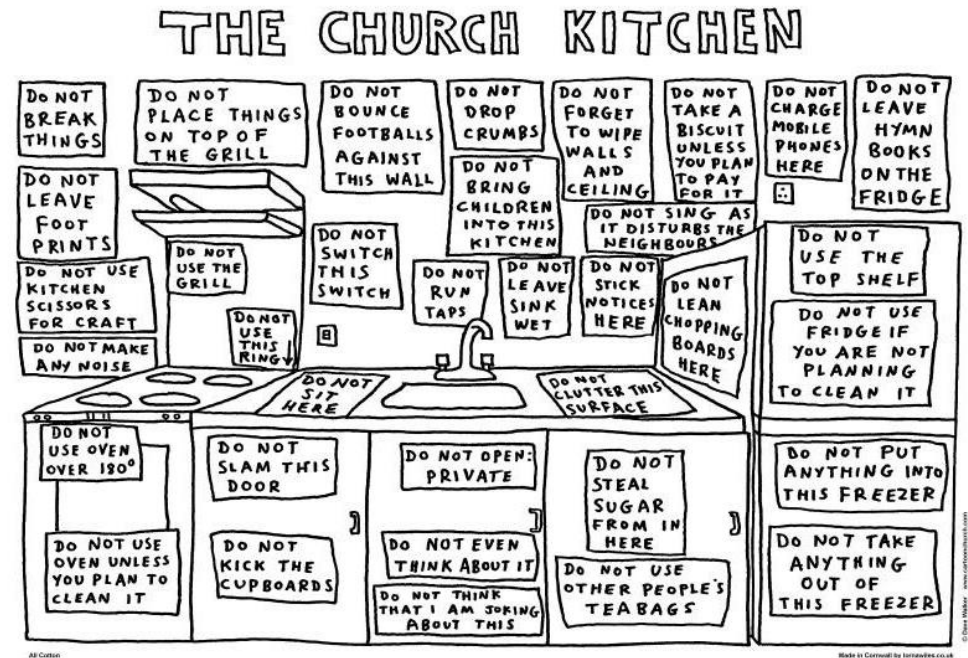 THE CHURCH KITCHEN
DO NOT
BREAK
THINGS
DO NOT
PLACE THINGS
ON TOP OF
THE GRILL
DO NOT
BOUNCE
FOOTBALLS
AGAINST
THIS WALL
DO NOT
DROP
CRUMBS
DO NOT
FORGET
TO WIPE
WALLS
AND
CEILING
DO NOT
TAKE A
BISCUIT
UNLESS
YOU PLAN
TO PAY
FOR IT
DO NOT
CHARGE
MOBILE
PHONES
HERE
DO NOT
LEAVE
HYMN
BOOKS
ON THE
FRIDGE
DO NOT
LEAVE
FOOT
PRINTS
DO NOT
BRING
CHILDREN
INTO THIS
KITCHEN
DO NOT SING AS
IT DISTURBS THE
NEIGHBOURS
DO NOT USE
KITCHEN
SCISSORS
FOR CRAFT
DO NOT
USE THE
GRILL
DO NOT
SWITCH
THIS
SWITCH
DO NOT
RUN
TAPS
DO NOT
LEAVE
SINK
WET
DO NOT
STICK
NOTICES
HERE
DO NOT
LEAN
CHOPPING
BOARDS
HERE
DO NOT
USE THE
TOP SHELF
DO NOT MAKE
ANY NOISE
DO NOT
USE
THIS
RING
DO NOT USE
FRIDGE IF
YOU ARE NOT
PLANNING
TO CLEAN IT
DO NOT
SIT
HERE
DO NOT
CLUTTER THIS
SURFACE
DO NOT
USE OVEN
OVER 180°
DO NOT
SLAM THIS
DOOR
DO NOT OPEN:
PRIVATE
DO NOT
STEAL
SUGAR
FROM IN
HERE
DO NOT PUT
ANYTHING INTO
THIS FREEZER
DO NOT USE
OVEN UNLESS
YOU PLAN TO
CLEAN IT
DO NOT
KICK THE
CUPBOARDS
DO NOT EVEN
THINK ABOUT IT
DO NOT THINK
THAT I AM JOKING
ABOUT THIS
DO NOT USE
OTHER PEOPLE'S
TEABAGS
DO NOT TAKE
ANYTHING
OUT OF
THIS FREEZER
© Dave Walker www.cartoonchurch.com
All Cotton
Made in Cornwall by lornawiles.co.uk